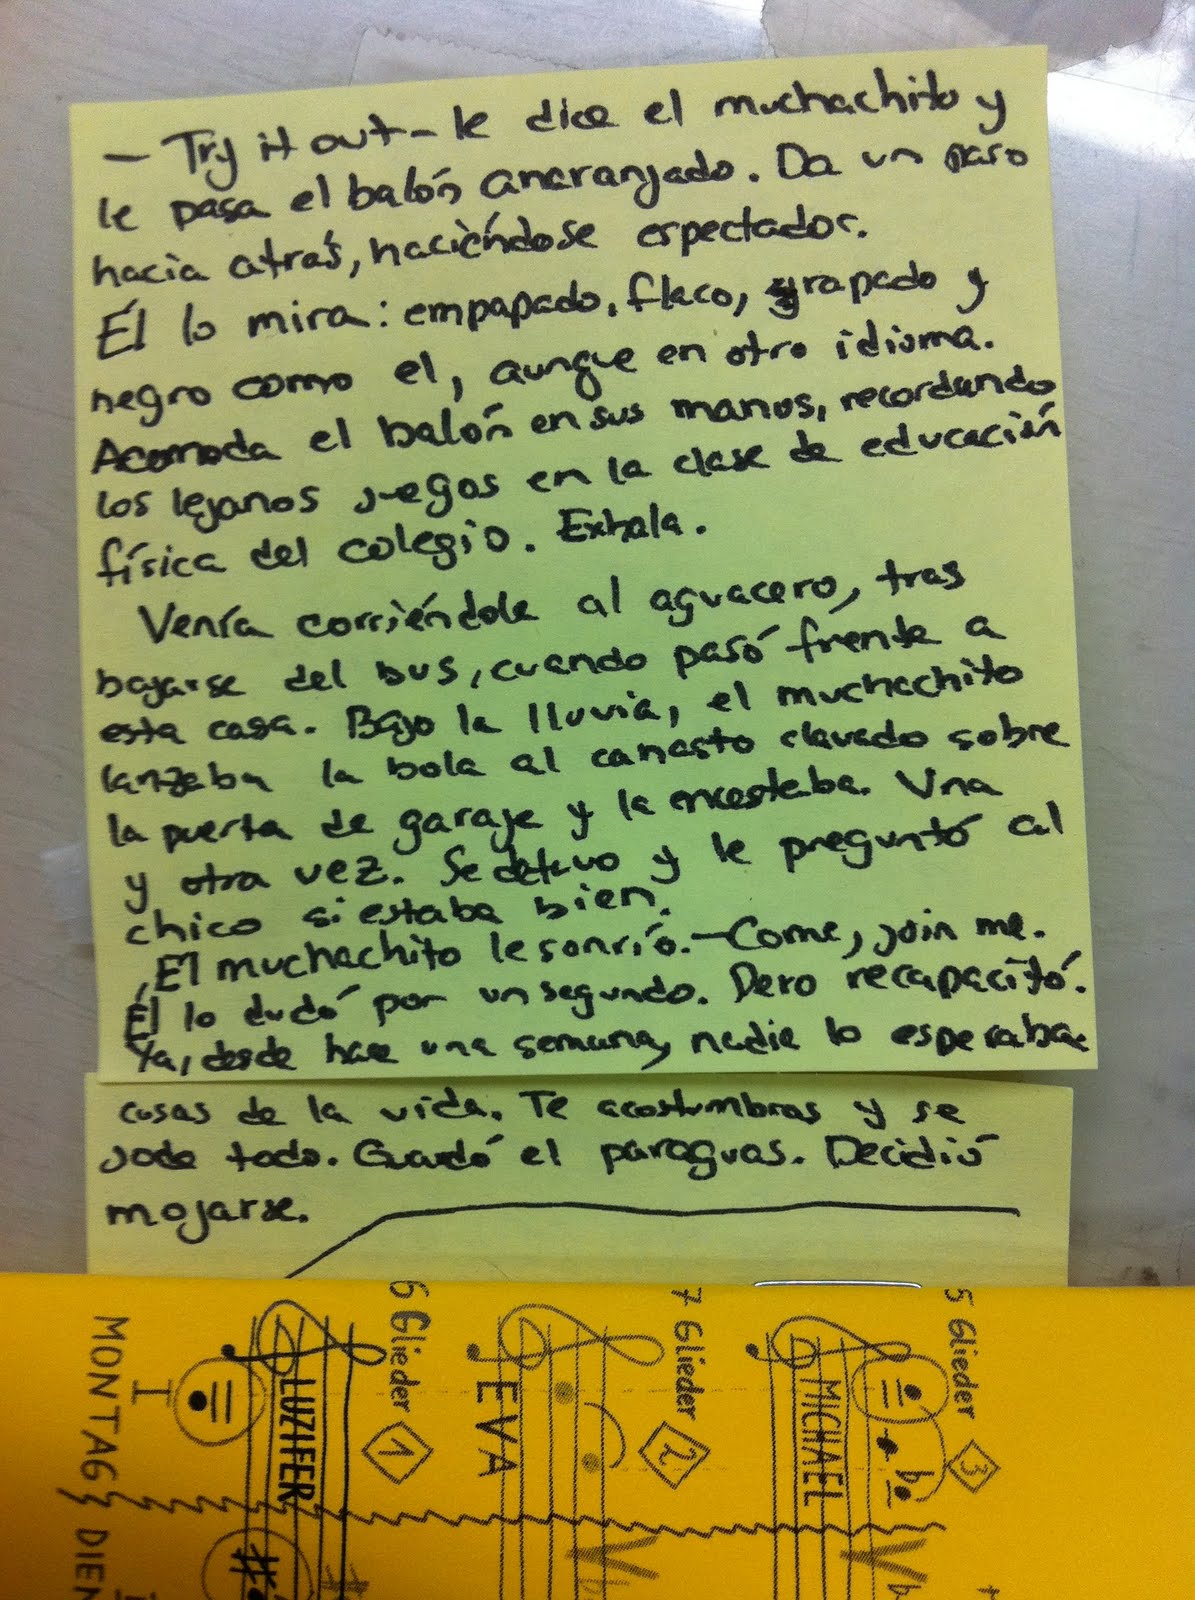 — Try it out — le dice el muchachito y
le pasa el balón anaranjado. Da un paso
hacia atrás, haciéndose espectador.
Él lo mira: empapado, flaco, rapado y
negro como el, aunque en otro idioma.
Acomoda el balón en sus manos, recordando
los lejanos juegos en la clase de educación
física del colegio. Exhala.
Venía corriéndole al aguacero, tras
bajarse del bus, cuando pasó frente a
esta casa. Bajo la lluvia, el muchachito
lanzaba la bola al canasto clavado sobre
la puerta de garaje y la encestaba. Una
y otra vez. Se detuvo y le preguntó al
chico si estaba bien.
El muchachito le sonrió. — Come, join me.
Él lo dudó por un segundo. Pero recapacitó.
Ya, desde hace una semana, nadie lo esperaba.
cosas de la vida. Te acostumbras y se
jode todo. Guardó el paraguas. Decidió
mojarse.
5 Glieder 3
MICHAEL
7 Glieder 2
EVA
6 Glieder 1
LUZIFER
MONTAG DIEN
I